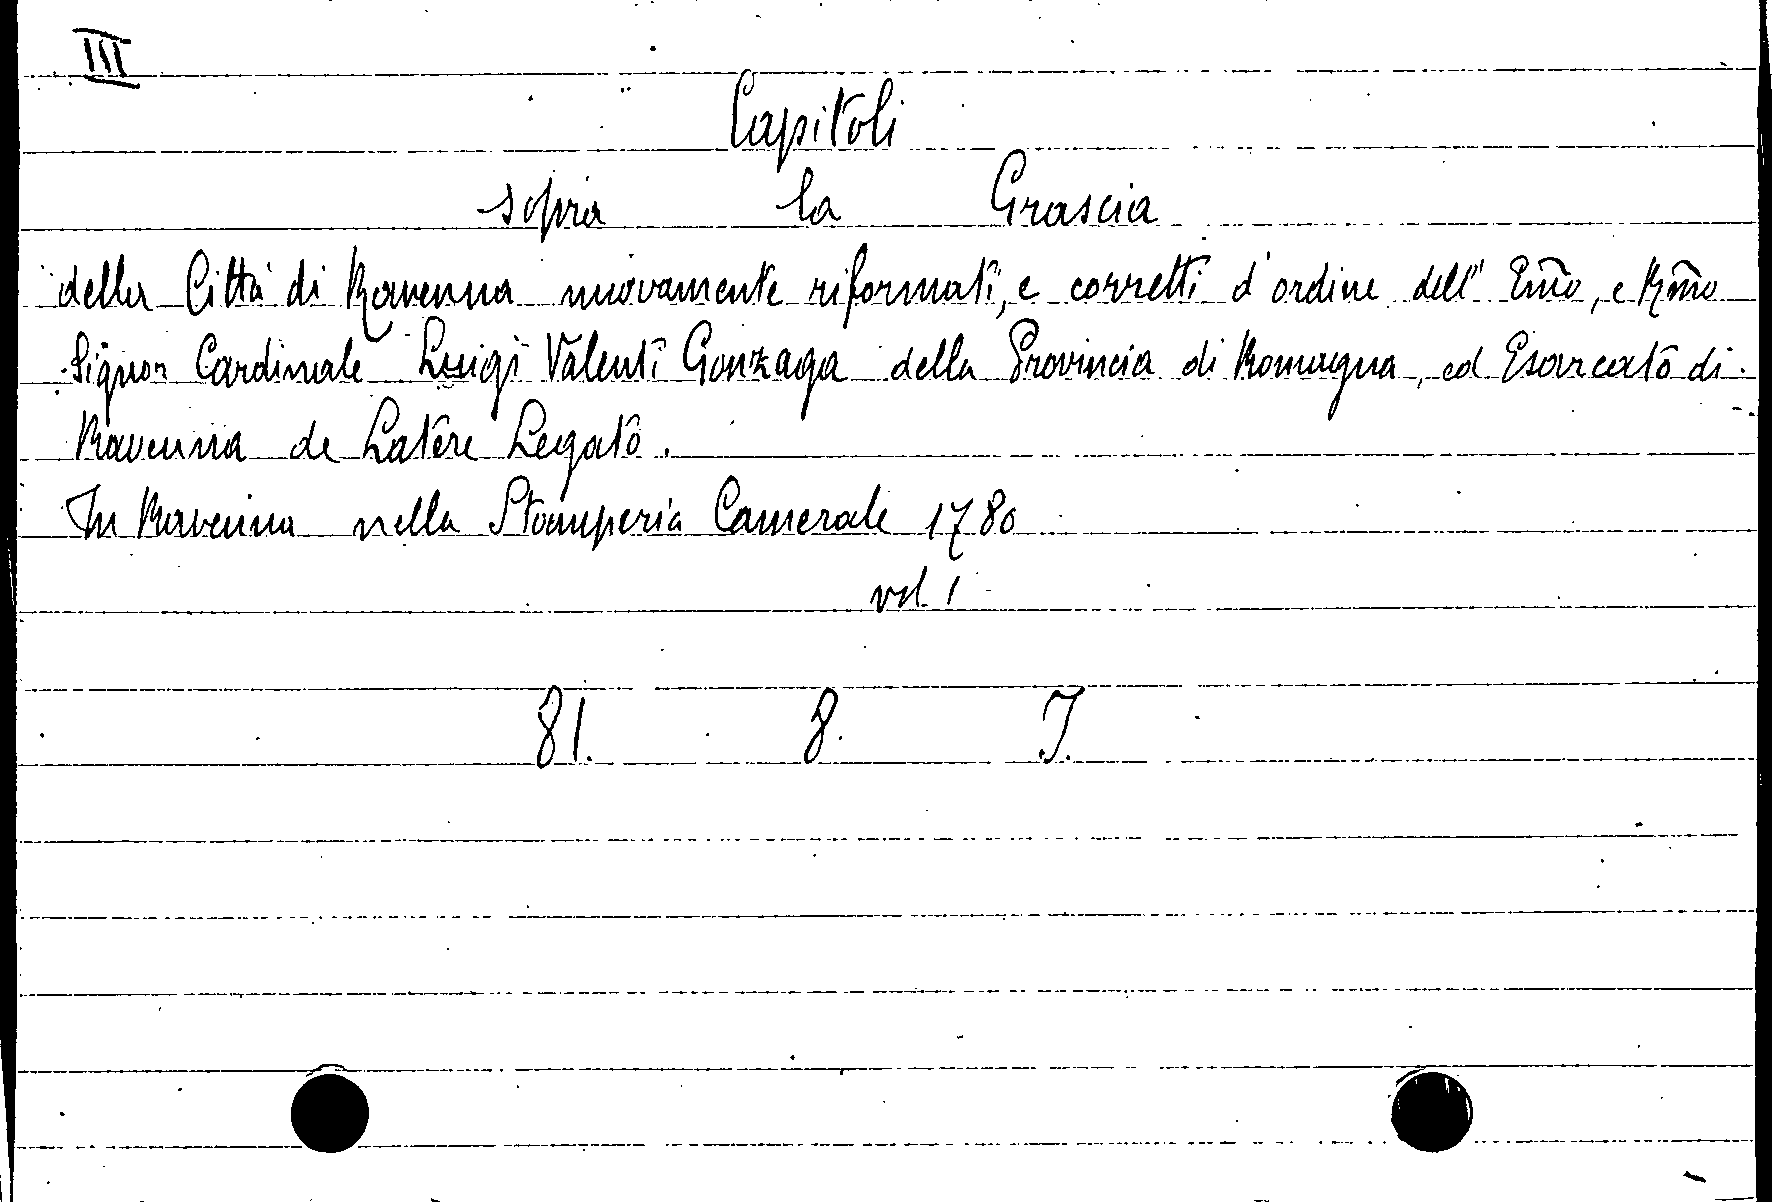 III
Capitoli
sopra la Grascia
della Città di Ravenna nuovamente riformati, e corretti d'ordine dell' Em̃o, e Rm̃o
Signor Cardinale Luigi Valenti Gonzaga della Provincia di Romagna, ed Esarcato di
Ravenna de Latere Legato.
In Ravenna nella Stamperia Camerale 1780
vol. 1
81. 8. J.